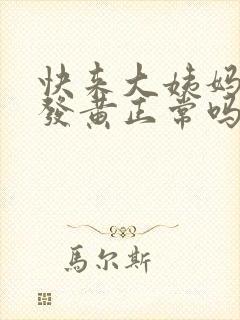 快来大姨妈
發黄正常吗
馬尔斯